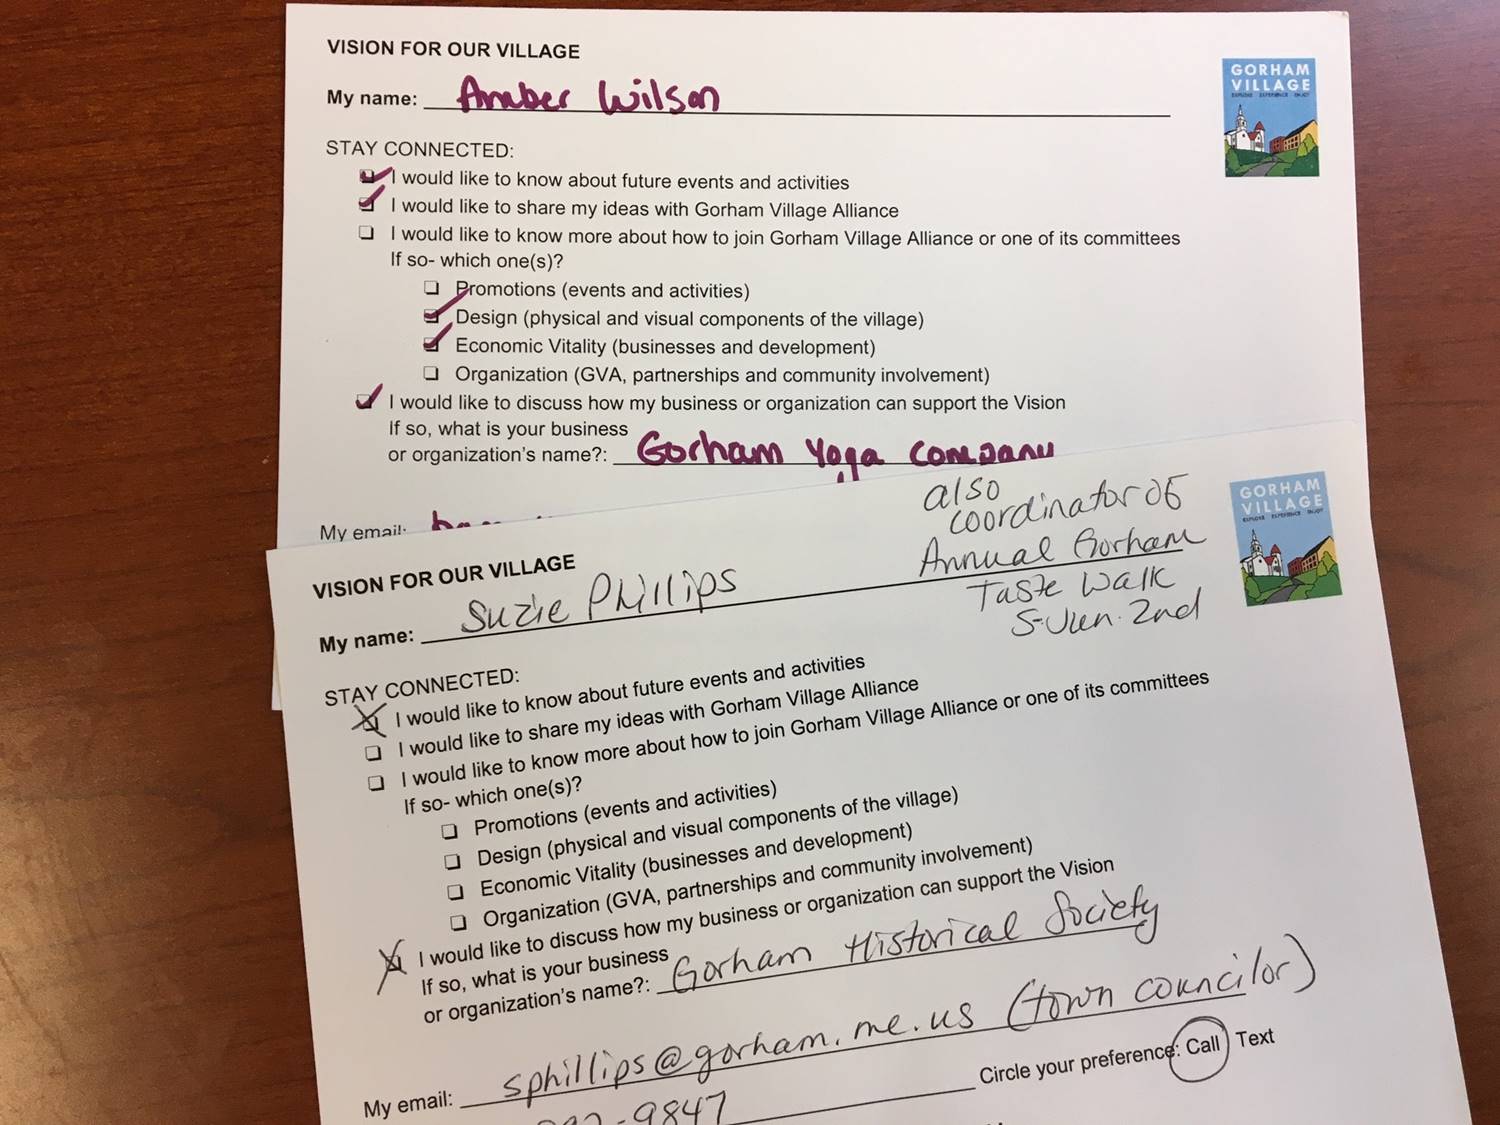 VISION FOR OUR VILLAGE
My name: Amber Wilson
GORHAM
VILLAGE
EXPLORE EXPERIENCE ENJOY
STAY CONNECTED:
I would like to know about future events and activities
I would like to share my ideas with Gorham Village Alliance
I would like to know more about how to join Gorham Village Alliance or one of its committees
If so- which one(s)?
Promotions (events and activities)
Design (physical and visual components of the village)
Economic Vitality (businesses and development)
Organization (GVA, partnerships and community involvement)
I would like to discuss how my business or organization can support the Vision
If so, what is your business
or organization's name?: Gorham Yoga Company
My email:
VISION FOR OUR VILLAGE
My name: Suzie Phillips
also
coordinator of
Annual Gorham
Taste Walk
S-Jun. 2nd
GORHAM
VILLAGE
EXPLORE EXPERIENCE ENJOY
STAY CONNECTED:
I would like to know about future events and activities
I would like to share my ideas with Gorham Village Alliance
I would like to know more about how to join Gorham Village Alliance or one of its committees
If so- which one(s)?
Promotions (events and activities)
Design (physical and visual components of the village)
Economic Vitality (businesses and development)
Organization (GVA, partnerships and community involvement)
I would like to discuss how my business or organization can support the Vision
If so, what is your business
or organization's name?: Gorham Historical Society
My email: sphillips@gorham.me.us (town councilor)
Circle your preference: Call Text
-9847